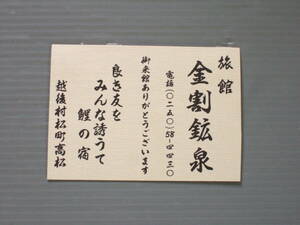 旅館
金割鉱泉
電話(〇二五〇)58-四四三〇
御来館ありがとうございます
良き友を
みんな誘うて
鯉の宿
越後村松町高松